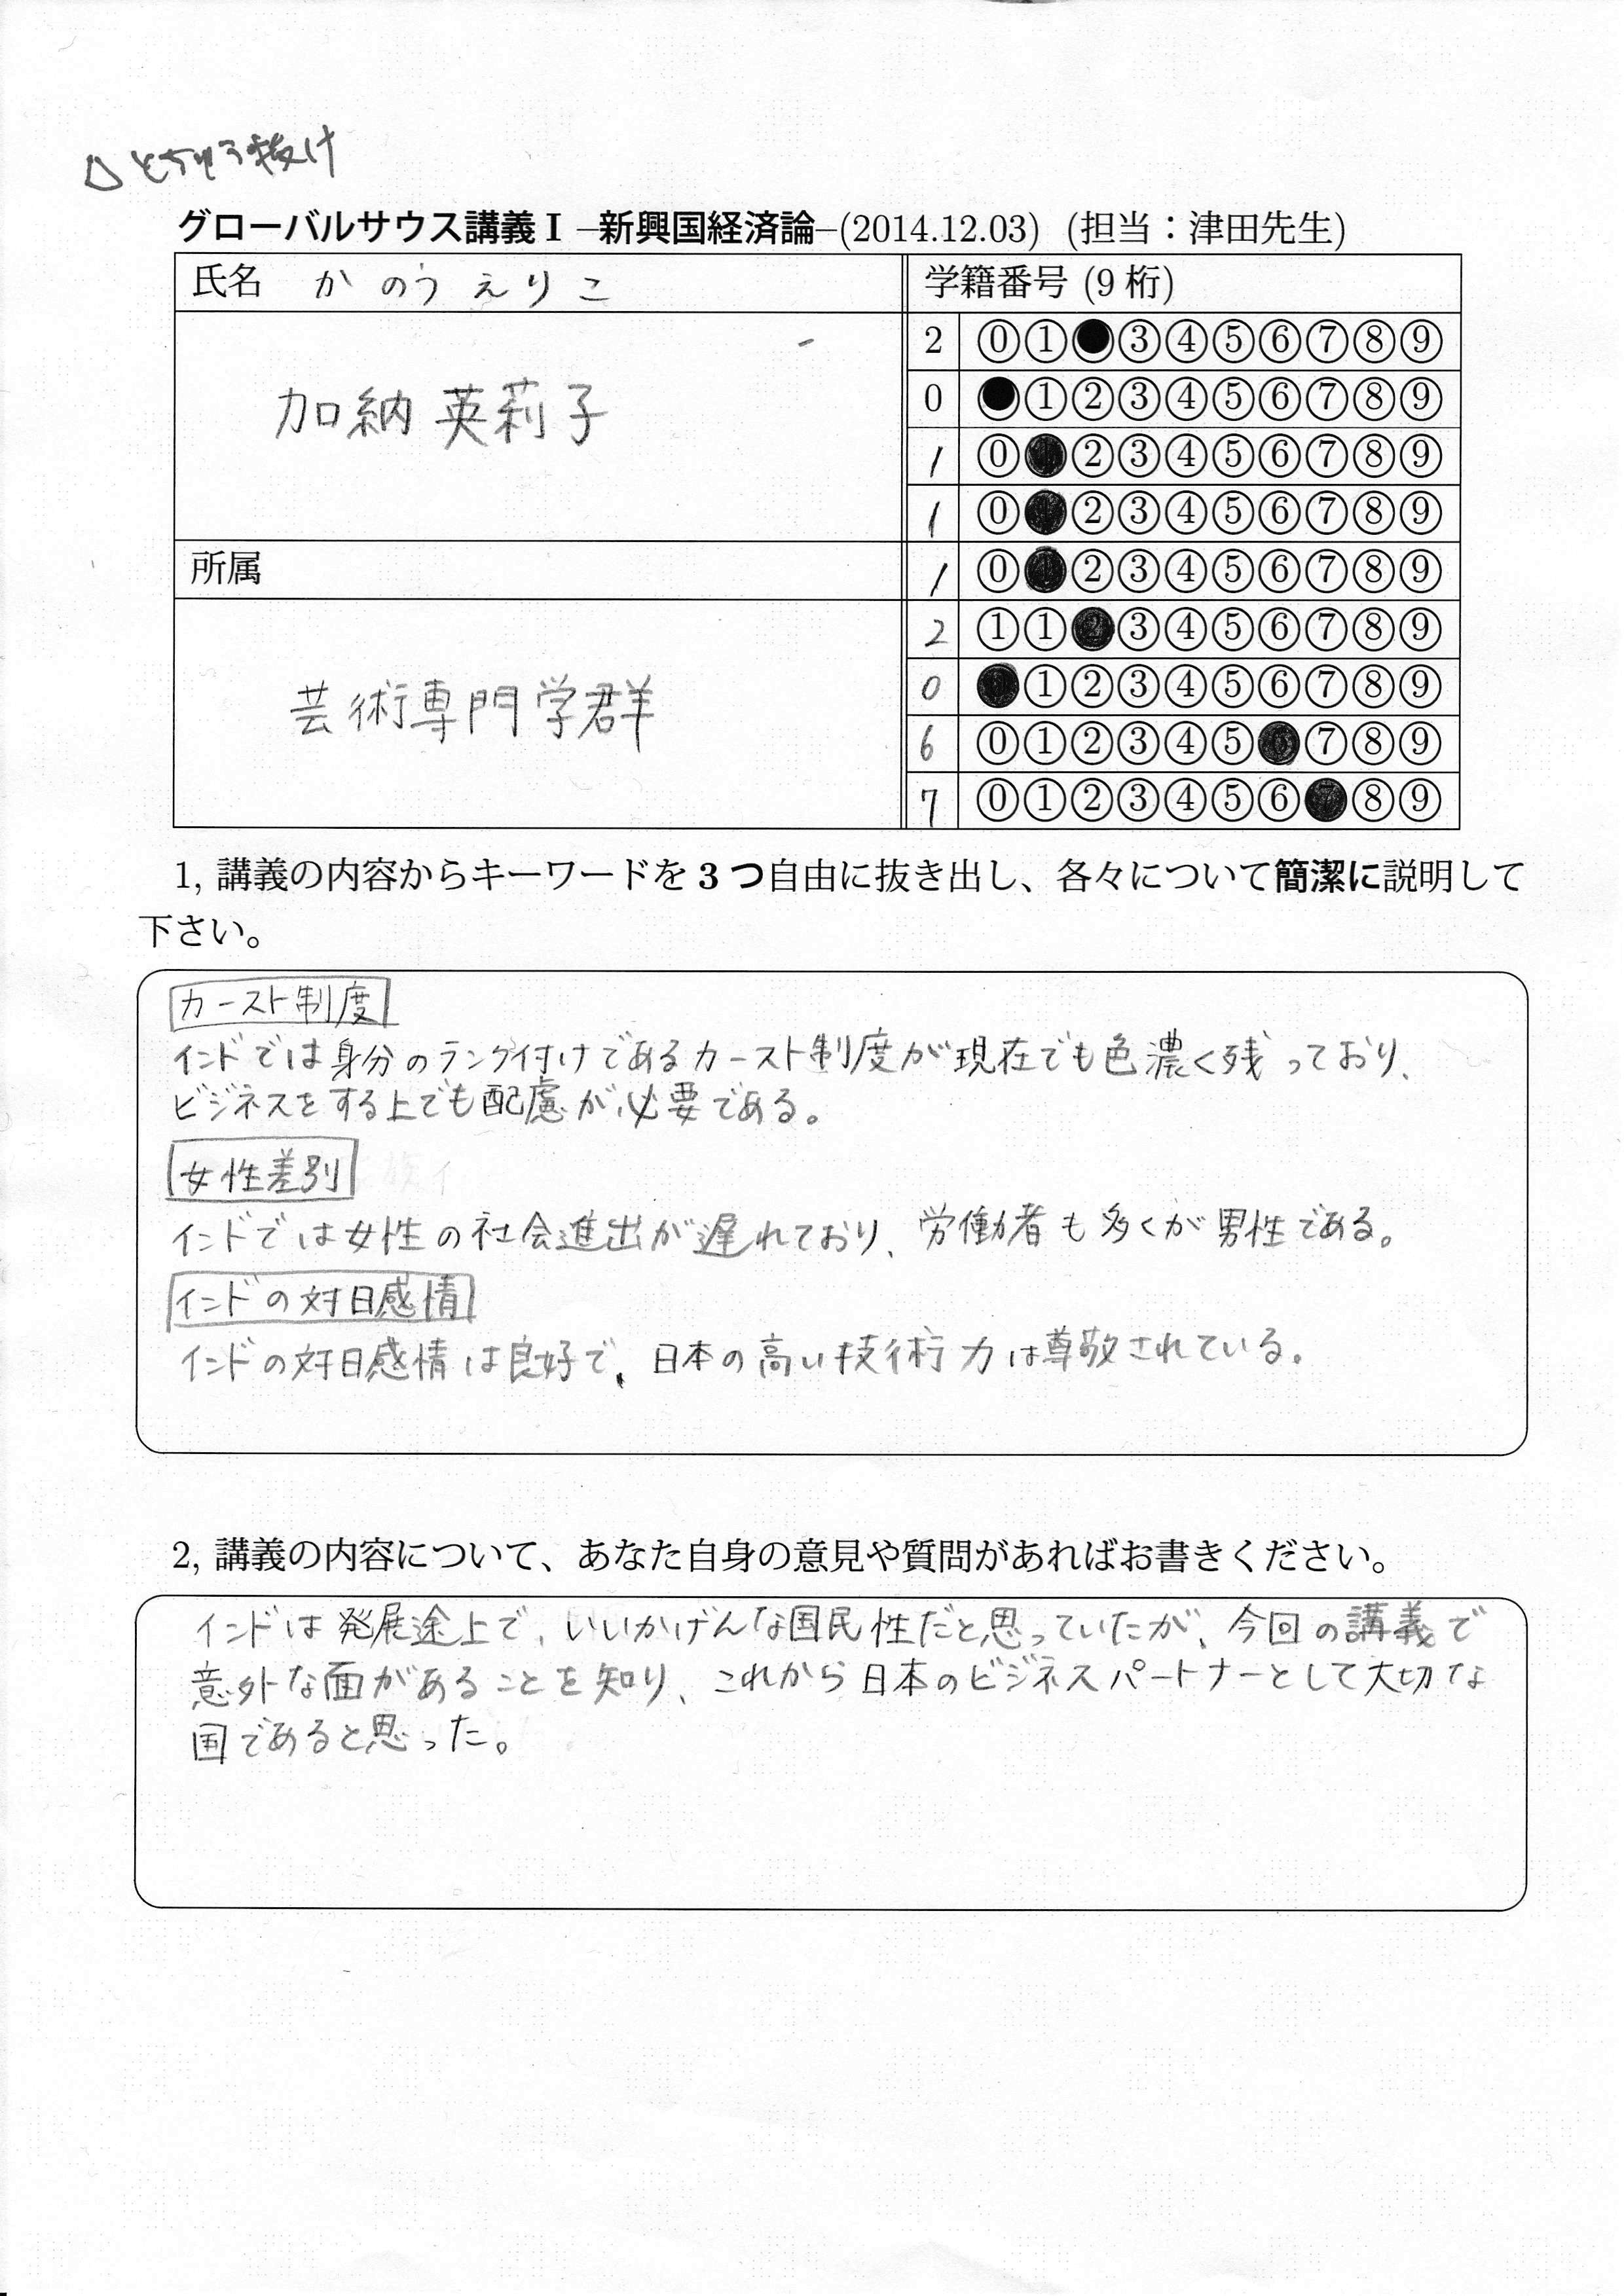 △とちゅう抜け
グローバルサウス講義 I –新興国経済論–(2014.12.03) (担当：津田先生)
氏名 かのう えりこ
学籍番号 (9 桁)
加納 英莉子
2 ⓪ ① ● ③ ④ ⑤ ⑥ ⑦ ⑧ ⑨
0 ● ① ② ③ ④ ⑤ ⑥ ⑦ ⑧ ⑨
1 ⓪ ● ② ③ ④ ⑤ ⑥ ⑦ ⑧ ⑨
1 ⓪ ● ② ③ ④ ⑤ ⑥ ⑦ ⑧ ⑨
所属
1 ⓪ ● ② ③ ④ ⑤ ⑥ ⑦ ⑧ ⑨
芸術専門学群
2 ① ① ● ③ ④ ⑤ ⑥ ⑦ ⑧ ⑨
0 ● ① ② ③ ④ ⑤ ⑥ ⑦ ⑧ ⑨
6 ⓪ ① ② ③ ④ ⑤ ● ⑦ ⑧ ⑨
7 ⓪ ① ② ③ ④ ⑤ ⑥ ● ⑧ ⑨
1, 講義の内容からキーワードを 3 つ自由に抜き出し、各々について簡潔に説明して
下さい。
カースト制度
インドでは身分のランク付けであるカースト制度が現在でも色濃く残っており、
ビジネスをする上でも配慮が必要である。
女性差別
インドでは女性の社会進出が遅れており、労働者も多くが男性である。
インドの対日感情
インドの対日感情は良好で、日本の高い技術力は尊敬されている。
2, 講義の内容について、あなた自身の意見や質問があればお書きください。
インドは発展途上で、いいかげんな国民性だと思っていたが、今回の講義で
意外な面があることを知り、これから日本のビジネスパートナーとして大切な
国であると思った。